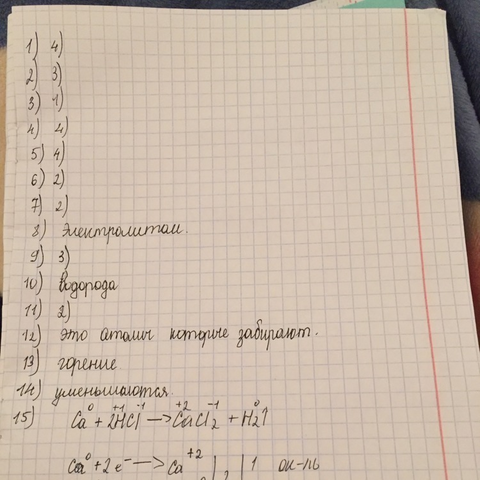 1) 4)
2) 3)
3) 1)
4) 4)
5) 4)
6) 2)
7) 2)
8) электролитам.
9) 3)
10) водорода
11) 2)
12) это атомы которые забирают.
13) горение
14) уменьшаются.
15) Ca⁰ + 2H⁺¹Cl⁻¹ → Ca⁺²Cl₂⁻¹ + H₂⁰↑
Ca⁰ + 2e⁻ → Ca⁺² | 2 | 1 ок-ль